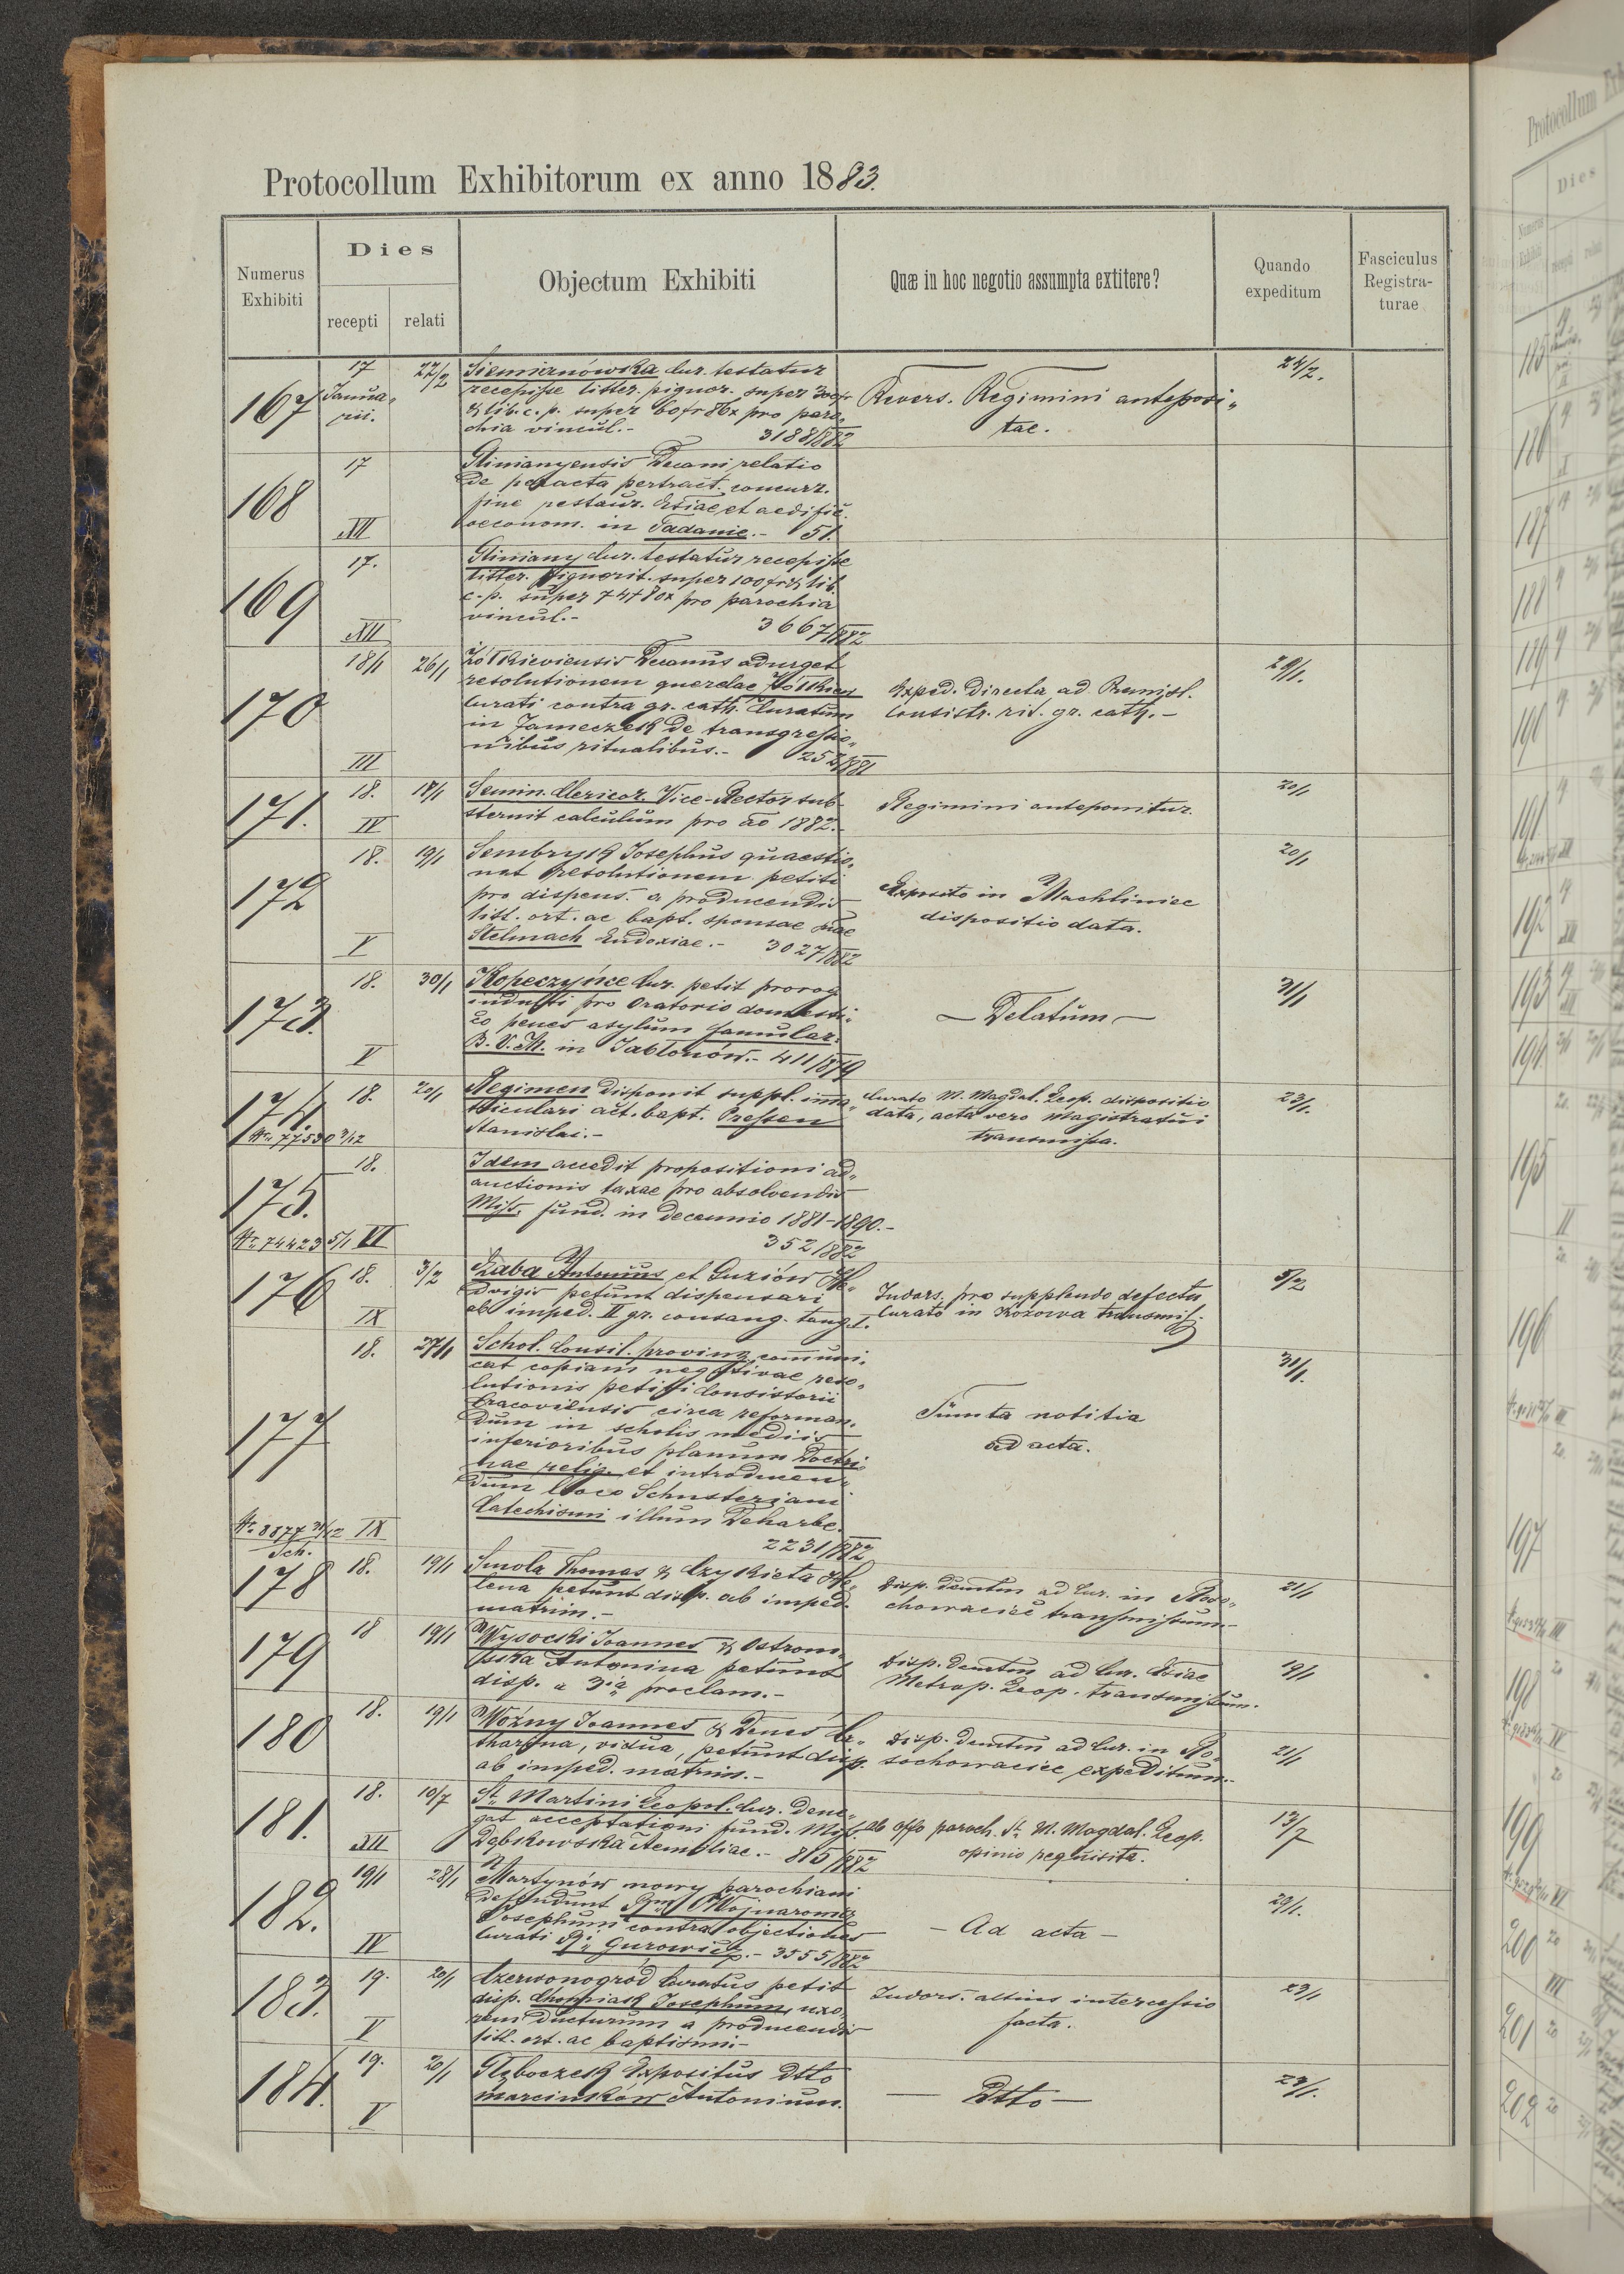 Protocollum Exhibitorum ex anno 1883.
Numerus Exhibiti
Dies
recepti
relati
Objectum Exhibiti
Quæ in hoc negotio assumpta extitere?
Quando expeditum
Fasciculus Registra-
turae
167
17 Janua-
rii.
22/2
Siemianówska Cur. testatur
recepisse litter. pignor. super 300 fr
& lib. c. p. super 60 fr 86x pro paro-
chia vincul.-
3188/882
Revers. Regimini anteposi-
tae.
24/2.
168
17
XII
Glinianyensis Decani relatio
de peracta pertract. concurr.
fine restaur. Ecliae et aedific.
oeconom. in Tadanie.- 51.
169
17.
XII
Gliniany Cur. testatur recepisse
litter. pignorit. super 100 fr & lib.
c.p. super 74 f 80x pro parochia
vincul.-
3667/882
170
18/1
III
26/1
Żółkieviensis Decanus adurget
resolutionem querelae Żółkiew
Curati contra gr. cath. Curatum
in Zameczek de transgressio-
nibus ritualibus.-
252/881
Exped. Directa ad Premisl.
Consistr. rit. gr. cath.-
29/1.
171.
18.
IV
18/1
Semin. Clericor. Vice-Rector sub-
sternit calculum pro ao 1882.-
Regimini anteponitur.
20/1
172
18.
V
19/1
Sembryk Josephus quaestio-
nat resolutionem petiti
pro dispens. a producendis
litt. ort. ac bapt. sponsae suae
Stelmach Eudoxiae.- 3027/882
Exposito in Machliniec
dispositio data.
20/1
173.
18.
V
30/1
Kopeczyńce Cur. petit prorog
indulti pro Oratorio domesti-
co penes asylum famular.
B. V. M. in Jabłonów.- 411/879
— Delatum —
31/1
174.
Nr. 77530 3/12
18.
20/1
Regimen disponit suppl. imma-
triculari act. bapt. Pressen
Stanislai.-
Curato M. Magdal. Leop. dispositio
data, acta vero Magistratui
transmissa.
23/1.
175.
Nr. 74423 5/1 VI
18.
Idem accedit propositioni ad-
auctionis taxae pro absolvendis
Miss. fund. in decennio 1881-1890.-
352/882
176
18.
IX
3/2
Żaba Antonius et Guziów He-
dvigis petunt dispensari
ab imped. II gr. consang. tang. I.
Indors. pro supplendo defectu
Curato in Kozowa transmiss.
5/2
177
Nr. 8877 31/12 IX
Sch.
18.
27/1
Schol. Consil. provinz. communi-
cat copiam negativae reso-
lutionis petiti Consistorii
Cracoviensis circa reforman-
dum in scholis mediis
inferioribus planum Doctri-
nae relig. et introducen-
dum loco Schusteriani
Catechismi illum Deharbe.
2231/882
Sumta notitia
ad acta.
31/1.
178
18.
19/1
Smola Thomas & Czykieta He-
lena petunt disp. ab imped.
matrim.-
Disp. demtm ad Cur. in Roso-
chowaciec transmissum.-
21/1
179
18
19/1
Wysocki Joannes & Ostrow-
ska Antonina petunt
disp. a 3a proclam.-
Disp. demtm ad Cur. Ecliae
Metrop. Leop. transmissum.
19/1
180
18.
19/1
Woźny Joannes & Denes Ca-
tharina, vidua, petunt disp.
ab imped. matrim.-
Disp. demtm ad Cur. in Ro-
sochowaciec expeditum.-
21/1
181.
18.
XII
10/7
St. Martini Leopol. Cur. dene-
gat acceptationi fund. Miss.
Dębkowska Aemiliae.- 815/882
ab offo paroch. St. M. Magdal. Leop.
opinio requisita.
13/7
182.
19/1
IV
28/1
Martynów nowy parochiani
defendunt Rm. Wojnarowicz
Josephum contra objectiones
Curati Ri. Gurowicz.- 3555/882
- Ad acta -
29/1.
183.
19.
V
20/1
Czerwonogród Curatus petit
disp. Chomiak Josephum, uxo-
rem ducturum a producendis
litt. ort. ac baptismi.-
Indors. altius intercessio
facta.
23/1
184.
19.
V
20/1
Głęboczek Expositus dtto
Marcinków Antonium.
— Dtto —
23/1.
Protocollum Exh
Dies
185
186
187
188
189
190
191
192
193
194
195
196
197
198
199
200
201
202